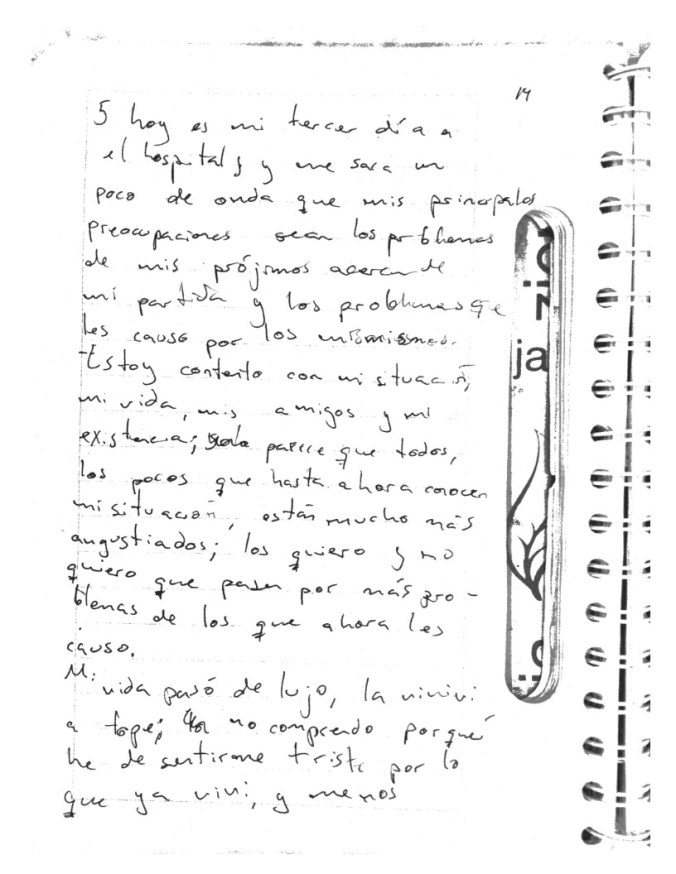 14
5 hoy es mi tercer día a
el hospital, y me saca un
poco de onda que mis principales
preocupaciones sean los problemas
de mis prójimos acerca de
mi partida y los problemas que
les causo por los mismos.
-Estoy contento con mi situación,
mi vida, mis amigos y mi
existencia; parece que todos,
los pocos que hasta ahora conocen
mi situación, están mucho más
angustiados; los quiero y no
quiero que pasen por más pro-
blemas de los que ahora les
causo.
Mi
vida pasó de lujo, la viviví
a tope; no comprendo porqué
he de sentirme triste por lo
que ya viví, y menos
ja